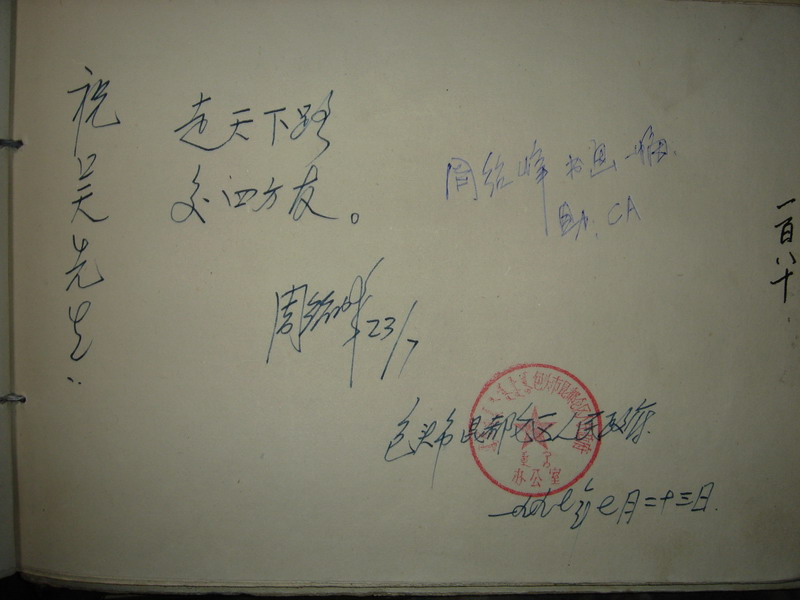 祝吴先生:
走天下路
交四方友。
周绍华 23/7
周绍峰 书画
一百八十
包头市昆都仑区人民政府
办公室
一九九七年七月二十三日